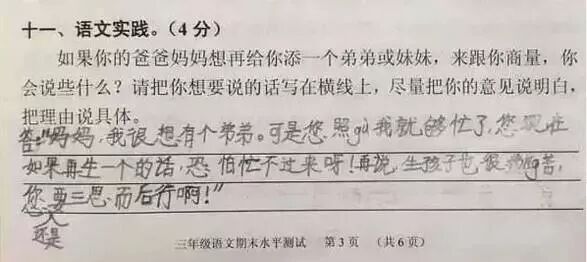 十一、语文实践。（4 分）
如果你的爸爸妈妈想再给你添一个弟弟或妹妹，来跟你商量，你
会说些什么？请把你想要说的话写在横线上，尽量把你的意见说明白，
把理由说具体。
答："妈妈，我很想有个弟弟。可是您照gù我就够忙了，您现在
如果再生一个的话，恐怕忙不过来呀！再说，生孩子也很痛苦，
您要三思而后行啊！"
还是
三年级语文期末水平测试 第 3 页 （共 6 页）